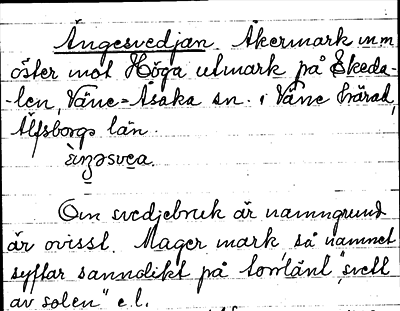 Ängesvedjan. Åkermark m m
öster mot Höga utmark på Ekeda-
-len, Väne-Åsaka sn. i Väne härad,
Älfsborgs län.
Om svedjebruk är namngrund
är ovisst. Mager mark så namnet
syftar sannolikt på torrländ „svett
av solen" e.l.